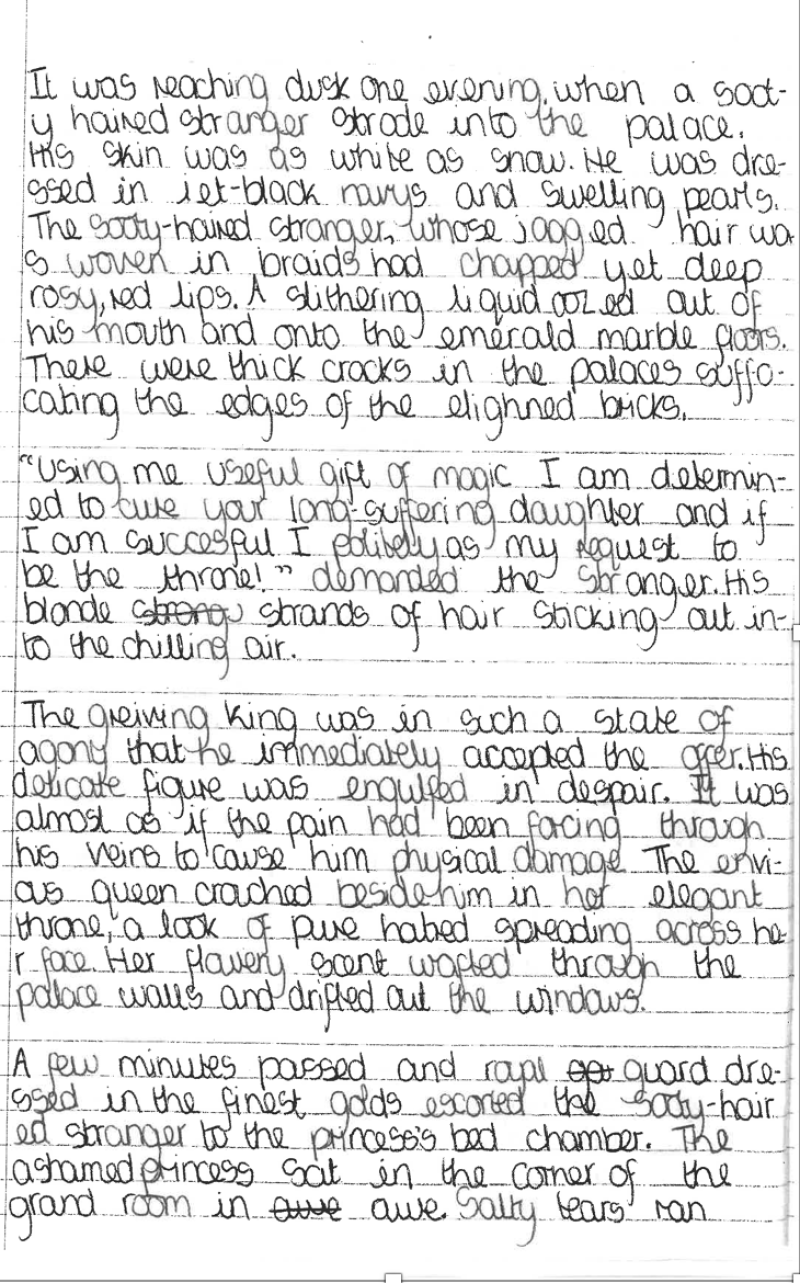 It was reaching dusk one evening, when a soot-
y haired stranger strode into the palace.
His skin was as white as snow. He was dre-
ssed in jet-black navys and swelling pearls.
The sooty-haired stranger, whose jagged hair wa
s woven in braids had chapped yet deep
rosy, red lips. A slithering liquid oozed out of
his mouth and onto the emerald marble floors.
There were thick cracks in the palaces suffo-
cating the edges of the elighned bricks.
"Using me useful gift of magic I am determin-
ed to cure your long-suffering daughter and if
I am succesful I politely as my request to
be the throne!" demanded the stranger. His
blonde strong strands of hair sticking out in-
to the chilling air.
The greiving King was in such a state of
agony that he immediately accepted the offer. His
delicate figure was engulfed in despair. It was
almost as if the pain had been forcing through
his veins to cause him physical damage. The envi-
ous queen crouched beside him in her elegant
throne, a look of pure hatred spreading across he
r face. Her flowery scent wafted through the
palace walls and drifted out the windows.
A few minutes passed and royal guard dre-
ssed in the finest golds escorted the sooty-hair
ed stranger to the princess's bed chamber. The
ashamed princess sat in the corner of the
grand room in awe awe. Salty tears ran